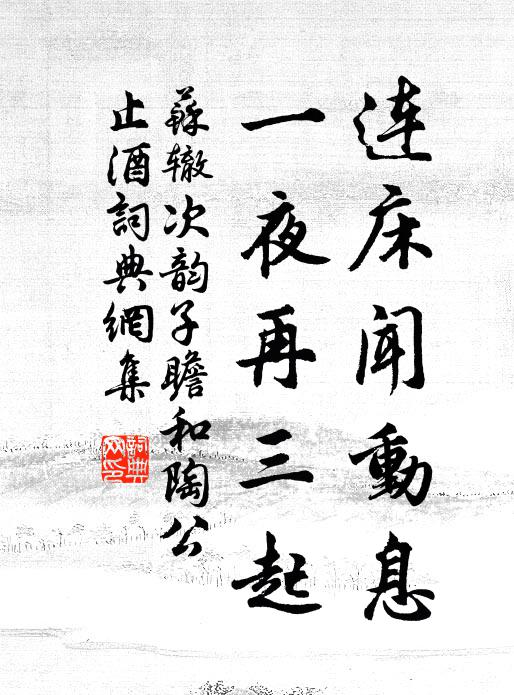 连床闻動息
一夜再三起
蘇辙次韵子瞻和陶公
止酒詞典網集
詞典网印